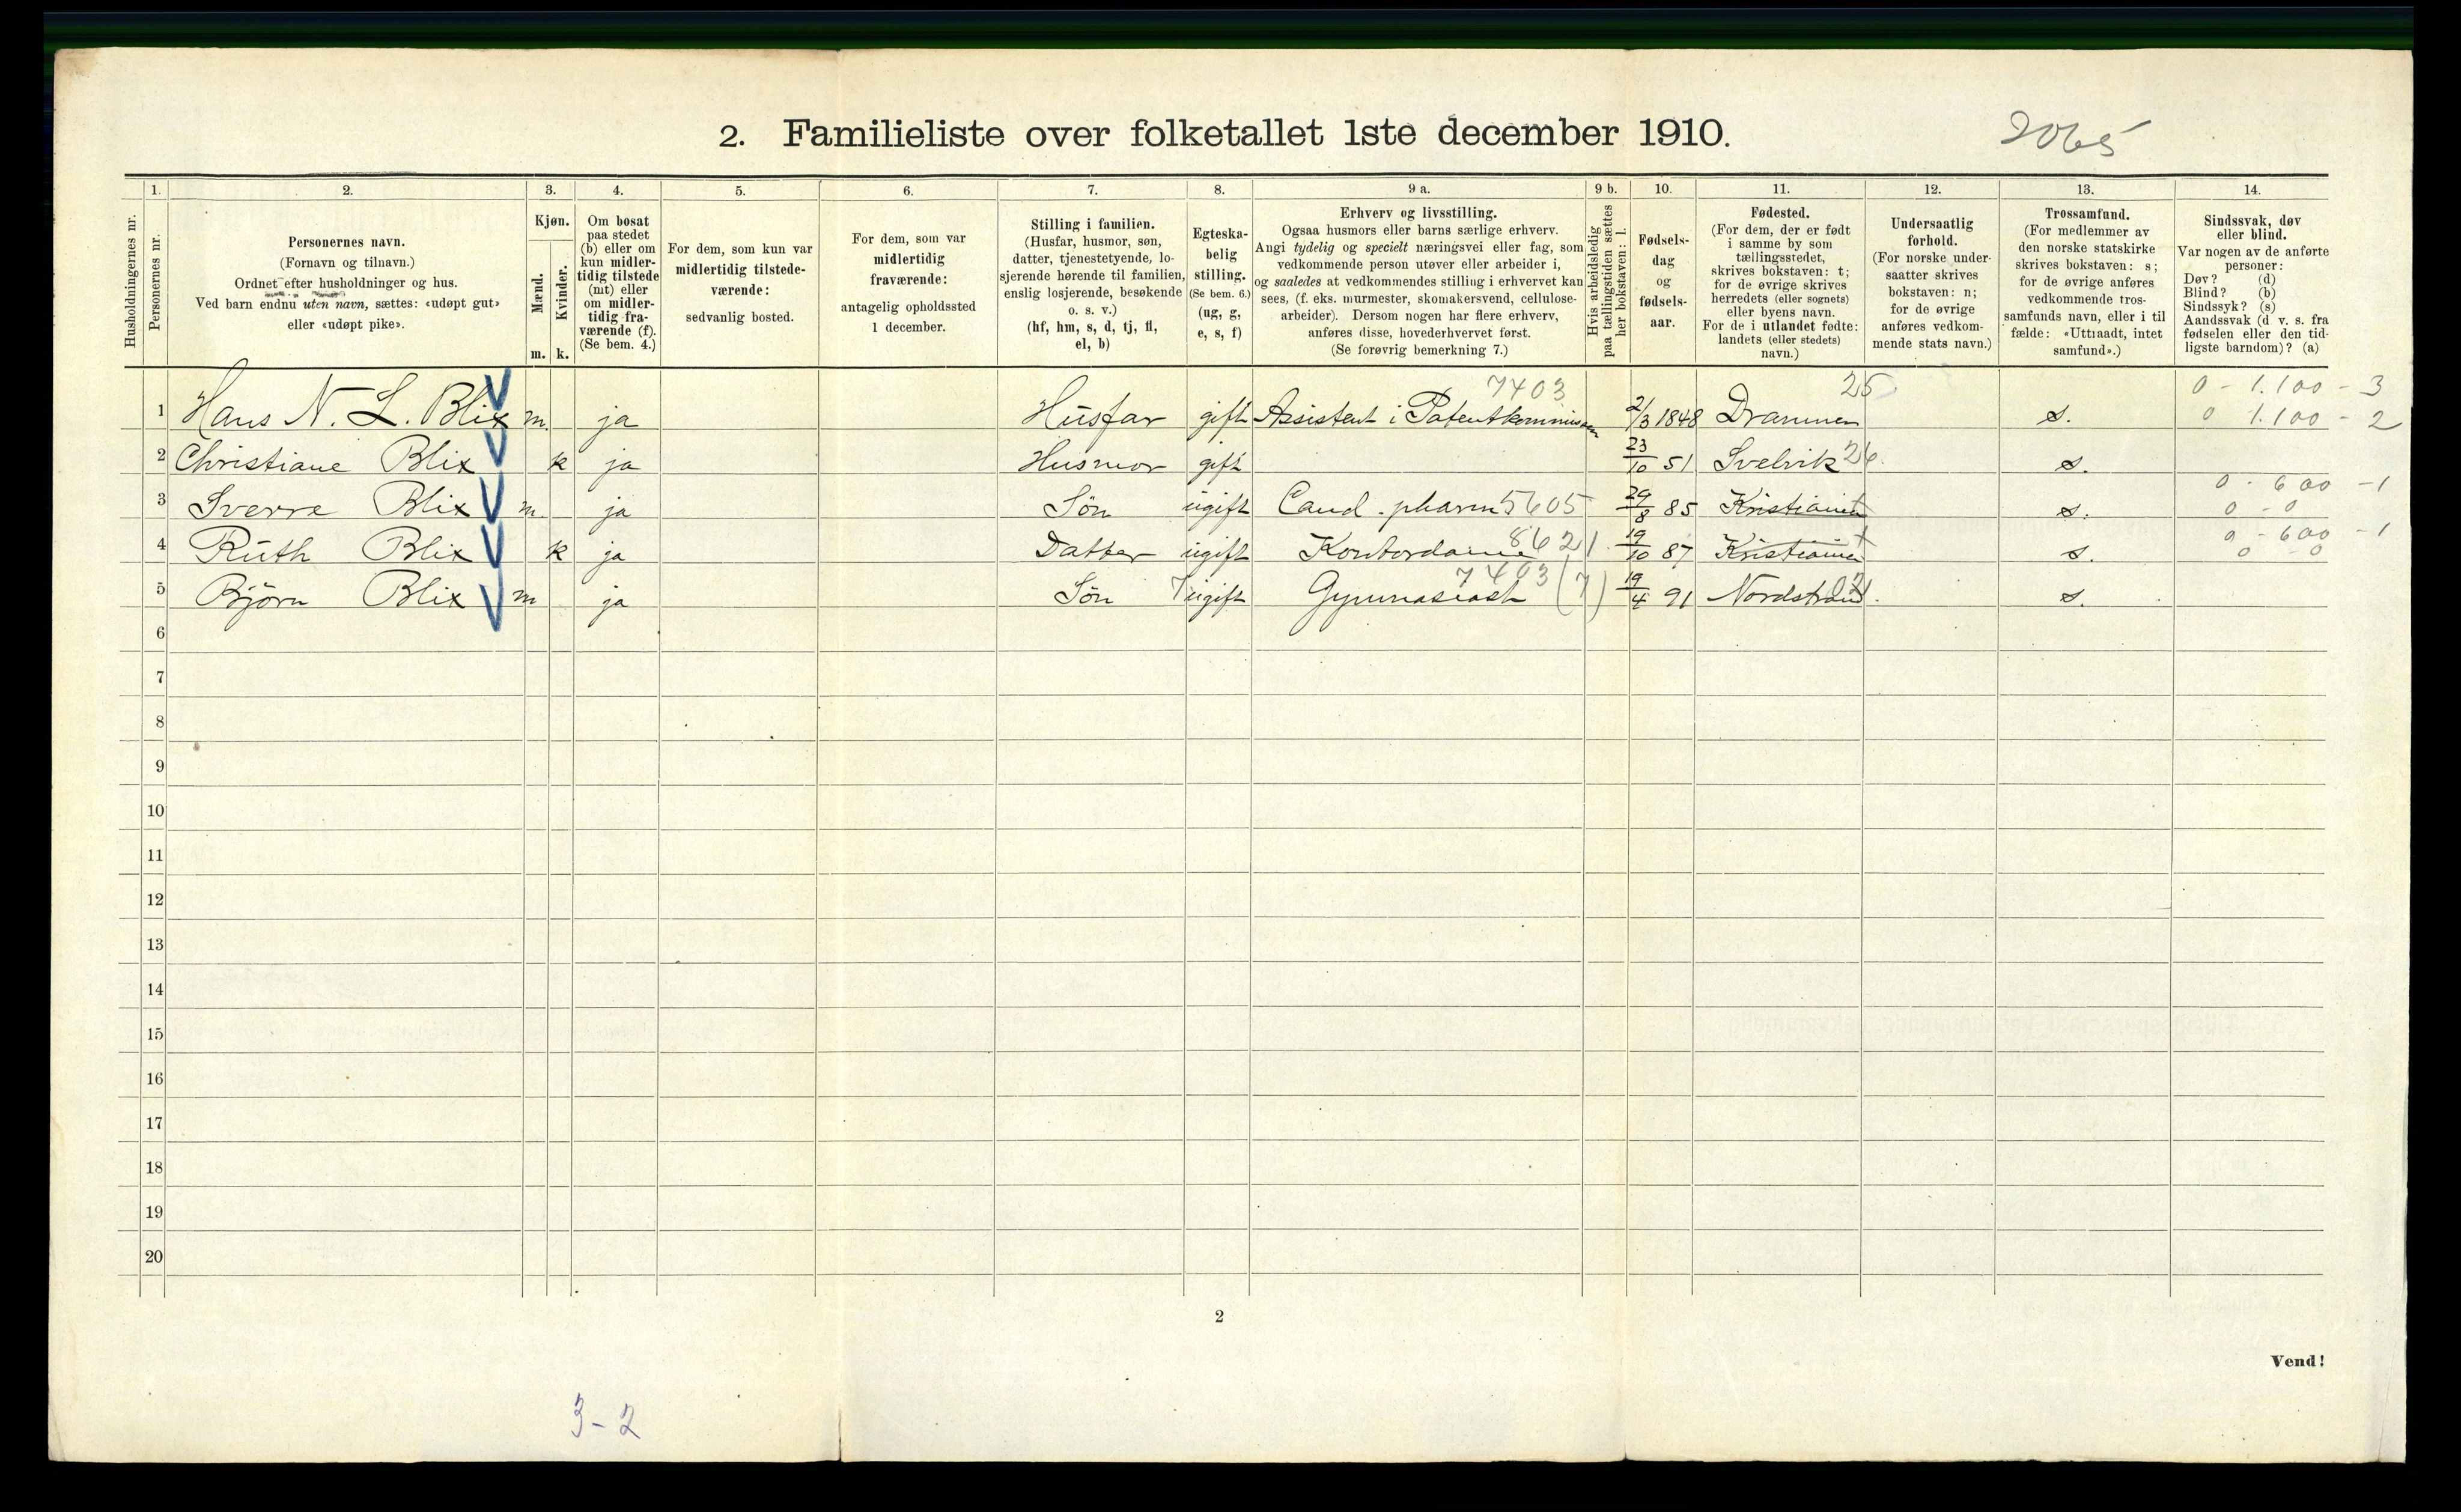 2. Familieliste over folketallet 1ste december 1910.
2065
1. 2. 3. 4. 5. 6. 7. 8. 9 a. 9 b. 10. 11. 12. 13. 14.
Husholdningernes nr.
Personernes nr.
Personernes navn.
(Fornavn og tilnavn.)
Ordnet efter husholdninger og hus.
Ved barn endnu uten navn, sættes: «udøpt gut»
eller «udøpt pike».
Kjøn.
Mænd.
Kvinder.
m. k.
Om bosat
paa stedet
(b) eller om
kun midler-
tidig tilstede
(mt) eller
om midler-
tidig fra-
værende (f).
(Se bem. 4.)
For dem, som kun var
midlertidig tilstede-
værende:
sedvanlig bosted.
For dem, som var
midlertidig
fraværende:
antagelig opholdssted
1 december.
Stilling i familien.
(Husfar, husmor, søn,
datter, tjenestetyende, lo-
sjerende hørende til familien,
enslig losjerende, besøkende
o. s. v.)
(hf, hm, s, d, tj, fl,
el, b)
Egteska-
belig
stilling.
(Se bem. 6.)
(ug, g,
e, s, f)
Erhverv og livsstilling.
Ogsaa husmors eller barns særlige erhverv.
Angi tydelig og specielt næringsvei eller fag, som
vedkommende person utøver eller arbeider i,
og saaledes at vedkommendes stilling i erhvervet kan
sees, (f. eks. murmester, skomakersvend, cellulose-
arbeider). Dersom nogen har flere erhverv,
anføres disse, hovederhvervet først.
(Se forøvrig bemerkning 7.)
Hvis arbeidsledig
paa tællingstiden sættes
her bokstaven: l.
Fødsels-
dag
og
fødsels-
aar.
Fødested.
(For dem, der er født
i samme by som
tællingsstedet,
skrives bokstaven: t;
for de øvrige skrives
herredets (eller sognets)
eller byens navn.
For de i utlandet fødte:
landets (eller stedets)
navn.)
Undersaatlig
forhold.
(For norske under-
saatter skrives
bokstaven: n;
for de øvrige
anføres vedkom-
mende stats navn.)
Trossamfund.
(For medlemmer av
den norske statskirke
skrives bokstaven: s;
for de øvrige anføres
vedkommende tros-
samfunds navn, eller i til
fælde: «Uttraadt, intet
samfund».)
Sindssvak, døv
eller blind.
Var nogen av de anførte
personer:
Døv? (d)
Blind? (b)
Sindssyk? (s)
Aandssvak (d v. s. fra
fødselen eller den tid-
ligste barndom)? (a)
7403 25 0 - 1.100 - 3
1 Hans N. L. Blix m. ja Husfar gift Assistent i Patentkommissionen 2/3 1848 Drammen s. 0 1.100 - 2
2 Christiane Blix k ja Husmor gift 23/10 51 Svelvik 26. s.
0 - 600 - 1
3 Sverre Blix m. ja Søn ugift Cand. pharm 5605 29/8 85 Kristiania t s. 0 - 0
0 - 600 - 1
4 Ruth Blix k ja Datter ugift Kontordame 8621. 19/10 87 Kristiania t s. 0 - 0
7403 (7)
5 Björn Blix m ja Søn 7 ugift Gymnasiast 19/4 91 Nordstrand s.
6
7
8
9
10
11
12
13
14
15
16
17
18
19
20
2
Vend!
3-2